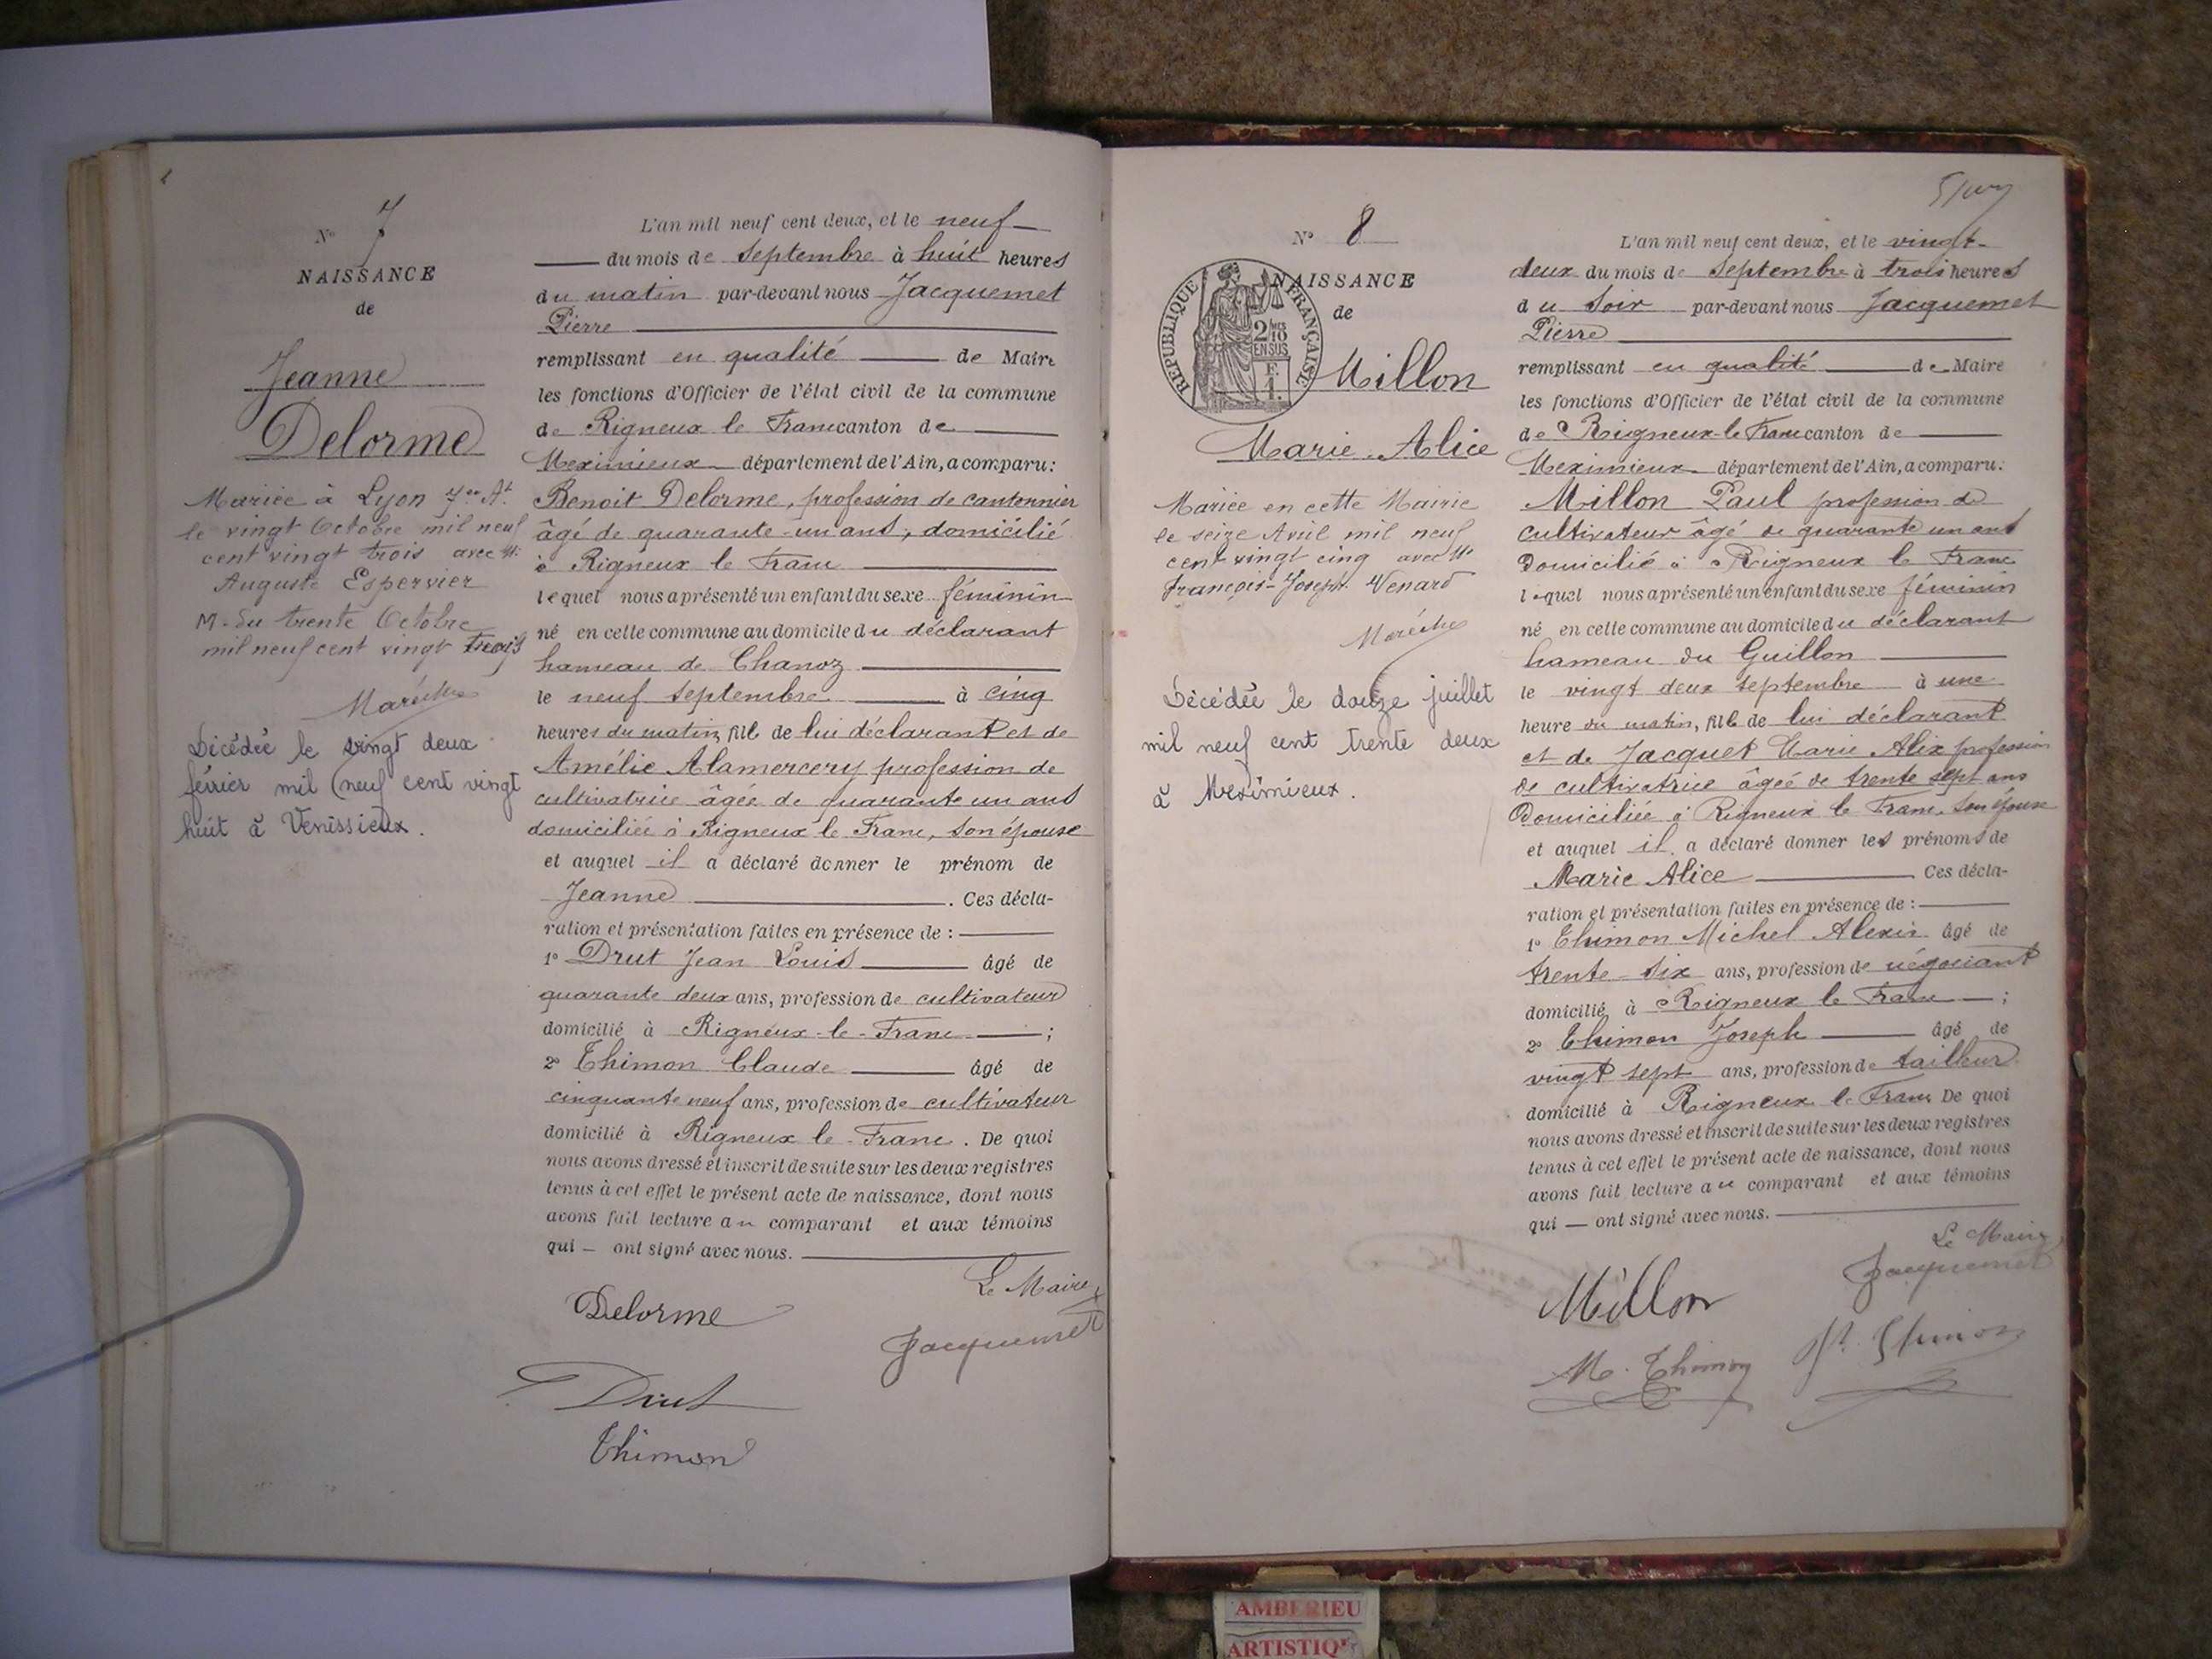 N° 7
NAISSANCE
de
Jeanne
Delorme
Mariée à Lyon 7me At
le vingt Octobre mil neuf
cent vingt trois avec M.
Auguste Espervier
M. du trente Octobre
mil neuf cent vingt trois
Décédée le vingt deux
février mil neuf cent vingt
huit à Venissieux.
L'an mil neuf cent deux, et le neuf
du mois de Septembre à huit heures
du matin par-devant nous Jacquemet
Pierre
remplissant en qualité de Maire
les fonctions d'Officier de l'état civil de la commune
de Rigneux le Franc canton de
Meximieux département de l'Ain, a comparu:
Benoit Delorme, profession de cantonnier
âgé de quarante-un ans, domicilié
à Rigneux le Franc
lequel nous a présenté un enfant du sexe féminin
né en cette commune au domicile du déclarant
hameau de Chanoz
le neuf septembre à cinq
heures du matin, fille de lui déclarant et de
Amélie Alamercery profession de
cultivatrice âgée de quarante un ans
domiciliée à Rigneux le Franc, son épouse
et auquel il a déclaré donner le prénom de
Jeanne . Ces décla-
ration et présentation faites en présence de :
1° Drut Jean Louis âgé de
quarante deux ans, profession de cultivateur
domicilié à Rigneux-le-Franc ;
2° Thimon Claude âgé de
cinquante neuf ans, profession de cultivateur
domicilié à Rigneux le-Franc. De quoi
nous avons dressé et inscrit de suite sur les deux registres
tenus à cet effet le présent acte de naissance, dont nous
avons fait lecture au comparant et aux témoins
qui — ont signé avec nous.
Le Maire
Delorme
Jacquemet
Drut
Thimon
N° 8
NAISSANCE
de
REPUBLIQUE FRANÇAISE
2 MES 10
EN SUS
F.
1.
Millon
Marie-Alice
Mariée en cette Mairie
le seize Avril mil neuf
cent vingt cinq avec M
François-Joseph Venard
Décédée le douze juillet
mil neuf cent trente deux
à Meximieux.
L'an mil neuf cent deux, et le vingt-
deux du mois de Septembre à trois heures
du soir par-devant nous Jacquemet
Pierre
remplissant en qualité de Maire
les fonctions d'Officier de l'état civil de la commune
de Rigneux-le-Franc canton de
Meximieux département de l'Ain, a comparu:
Millon Paul profession de
cultivateur âgé de quarante un ans
domicilié à Rigneux le Franc
lequel nous a présenté un enfant du sexe féminin
né en cette commune au domicile du déclarant
hameau du Guillon
le vingt deux septembre à une
heure du matin, fille de lui déclarant
et de Jacquet Marie Alix profession
de cultivatrice âgée de trente sept ans
domiciliée à Rigneux le Franc, son épouse
et auquel il a déclaré donner les prénoms de
Marie Alice Ces décla-
ration et présentation faites en présence de :
1° Thimon Michel Alexis âgé de
trente-six ans, profession de négociant
domicilié à Rigneux le Franc ;
2° Thimon Joseph âgé de
vingt sept ans, profession de tailleur
domicilié à Rigneux le Franc De quoi
nous avons dressé et inscrit de suite sur les deux registres
tenus à cet effet le présent acte de naissance, dont nous
avons fait lecture au comparant et aux témoins
qui — ont signé avec nous.
Le Maire
Jacquemet
Millon
M. Thimon
AMBERIEU
ARTISTIQ